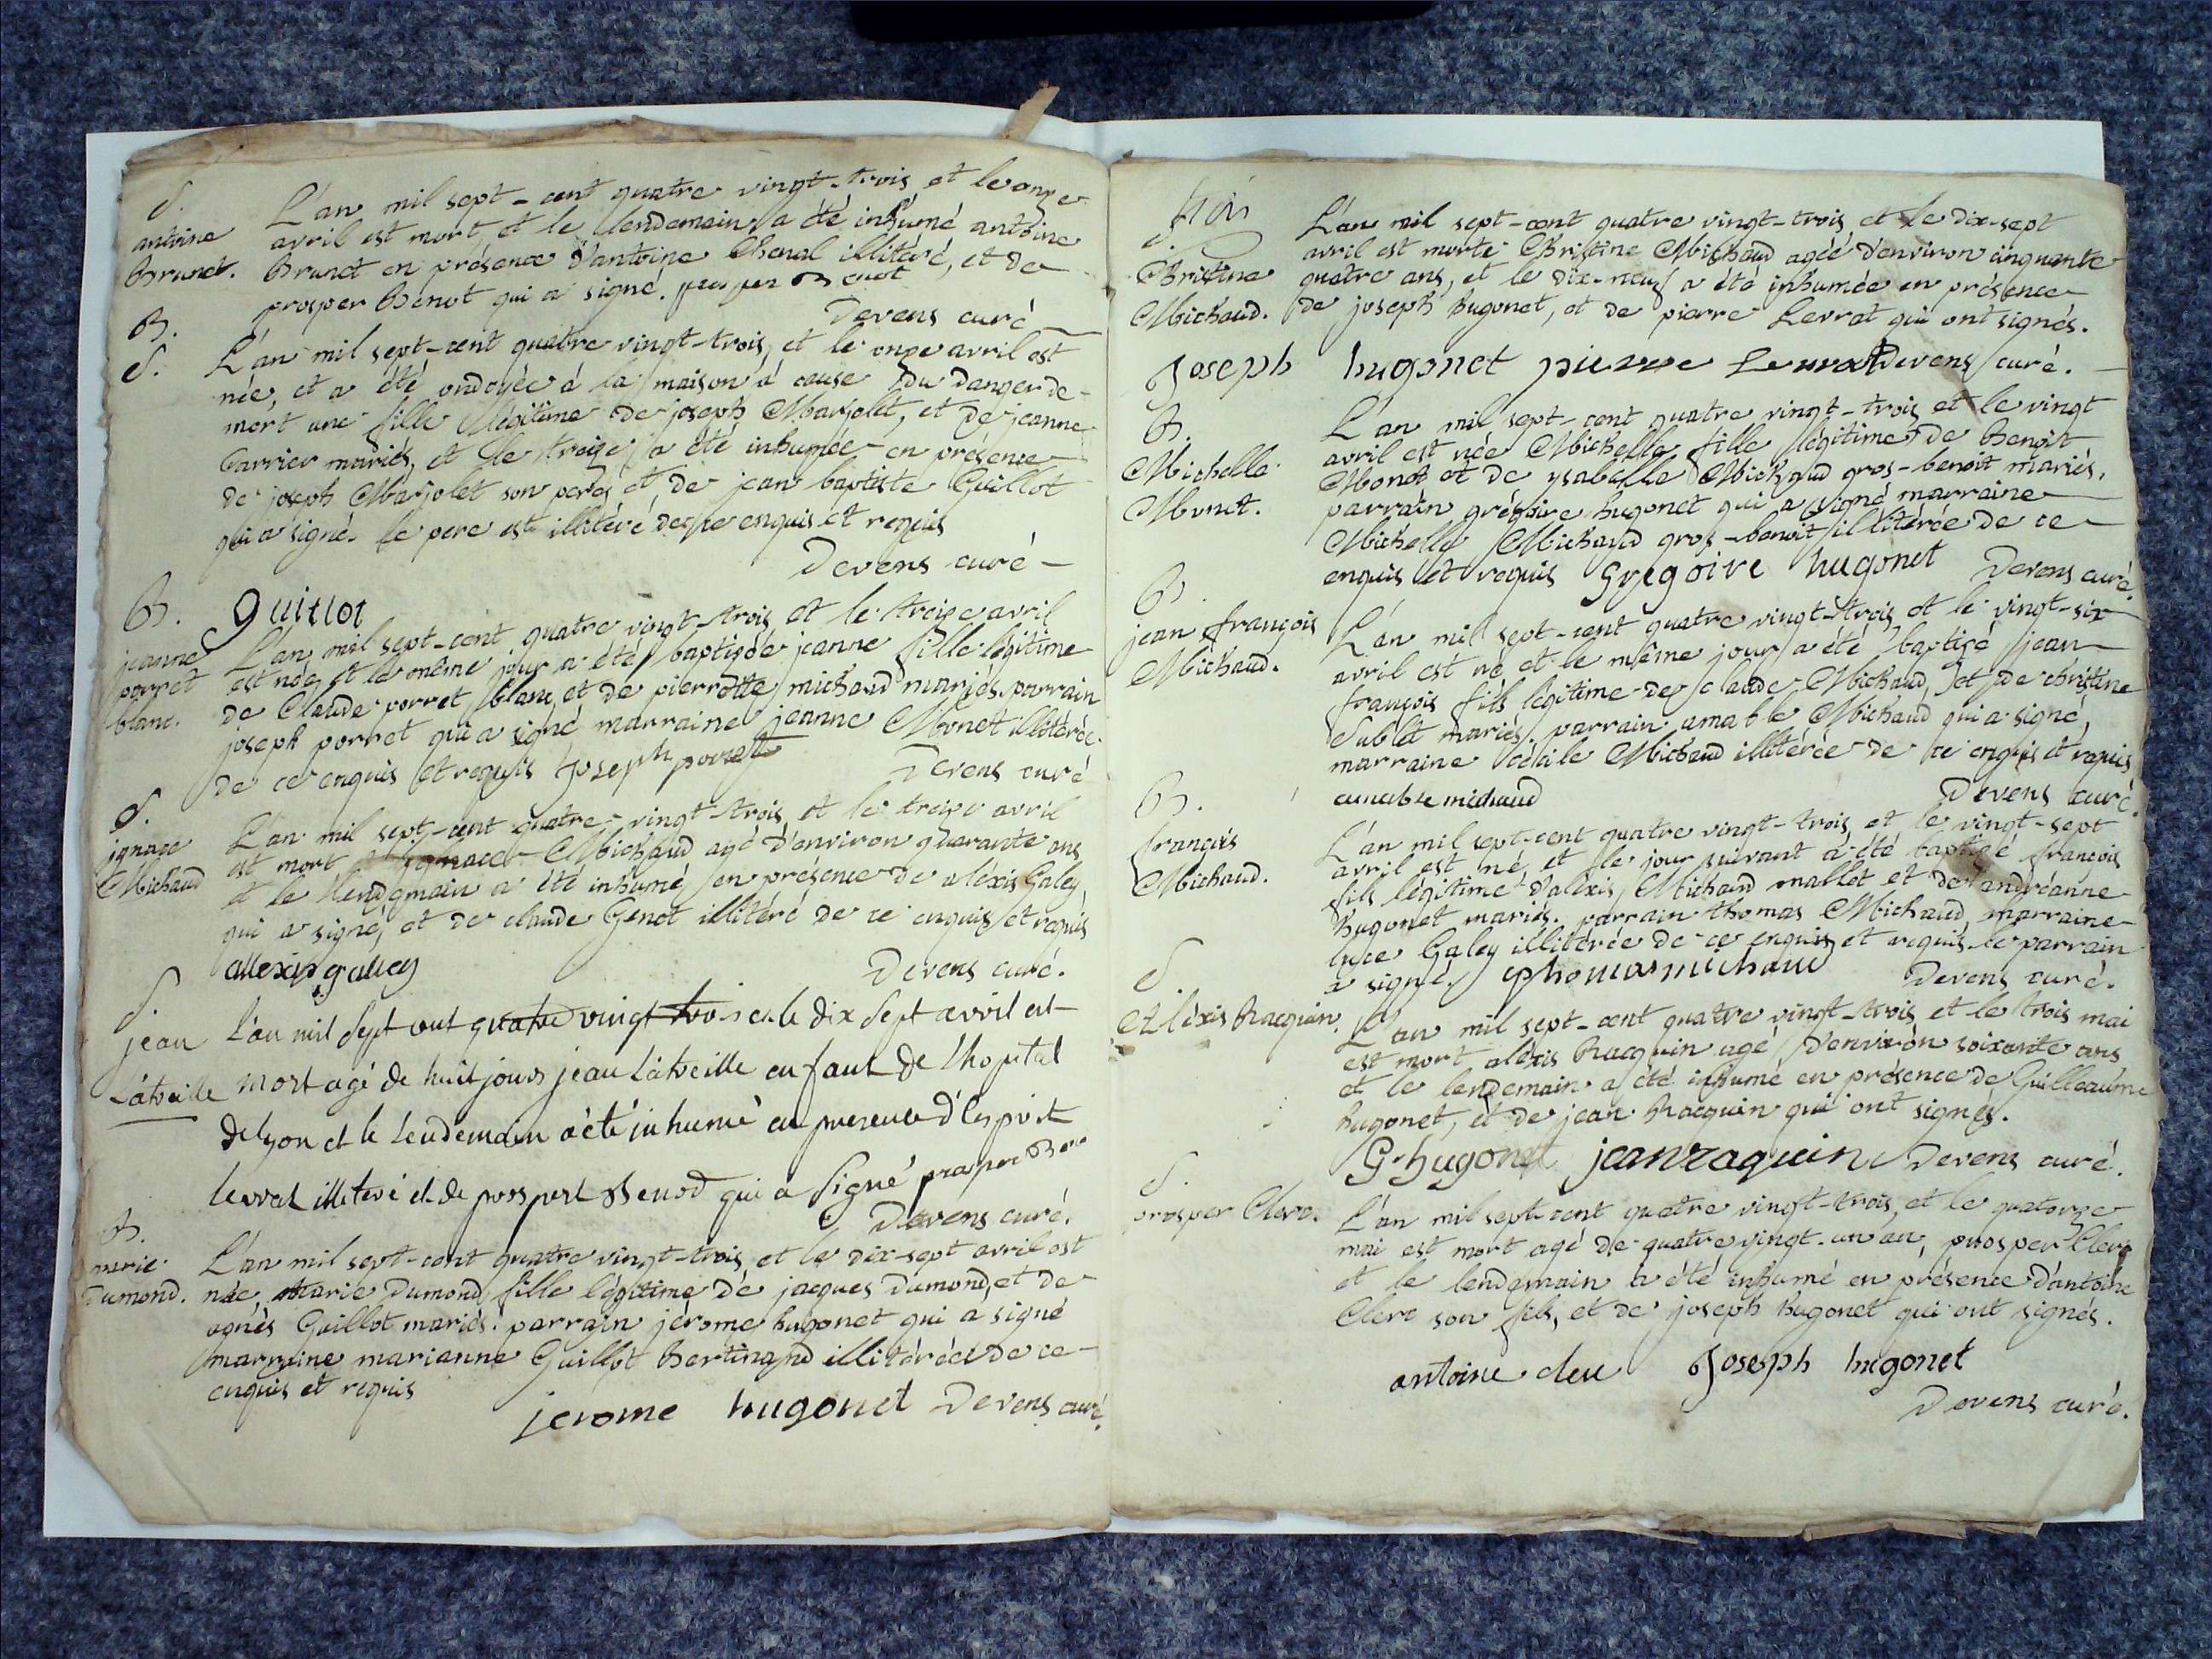 S.
antoine
Brunet.
L'an mil sept-cent quatre vingt-trois et le onze
avril est mort et le lendemain a été inhumé antoine
Brunet en présence d'antoine Chenal illitéré, et de
prosper Benot qui a signé. prosper Benot
Devens curé
B.
S.
L'an mil sept-cent quatre vingt-trois, et le onze avril est
née, et a été ondoyée à la maison à cause du danger de
mort une fille légitime de joseph Marjolet, et de jeanne
Carrier mariés, et le treize a été inhumée en présence
de joseph Marjolet son pere, et de jean baptiste Guillot
qui a signé. le pere est illitéré de ce enquis et requis
Devens curé
guillot
B.
jeanne
porret
blanc.
L'an mil sept-cent quatre vingt-trois et le treize avril
est née, et le même jour a été baptisée jeanne fille légitime
de Claude porret blanc, et de pierrotte michaud mariés. parrain
joseph porret qui a signé marraine jeanne Monet illitérée
de ce enquis et requis Joseph porrett
Devens curé
S.
ignace
Michaud
L'an mil sept-cent quatre-vingt-trois et le treize avril
est mort ignace Michaud agé d'environ quarante ans
et le lendemain a été inhumé en présence de aléxis Galey
qui a signé, et de claude Genot illitéré de ce enquis et requis
allexis galley
Devens curé.
S.
jean
Latreille
L'an mil sept cent quatre vingt trois et le dix sept avril est
mort agé de huit jours jean Latreille enfant de l'hopital
de lyon et le lendemain a été inhumé en presence d'esprit
levrat illiteré et de prospert Benod qui a signé prosper Ben
Devens curé.
B.
marie
Dumond.
L'an mil sept-cent quatre vingt-trois, et le dix-sept avril est
née, Marie Dumond fille légitime de jacques Dumond, et de
agnès Guillot mariés. parrain jérome hugonet qui a signé
marraine marianne Guillot Bertinand illitérée de ce
enquis et requis
jerome hugonet Devens curé.
trois
S.
Christine
Michaud.
L'an mil sept-cent quatre vingt-trois, et le dix-sept
avril est morte Christine Michaud agée d'environ cinquante
quatre ans, et le dix-neuf a été inhumée en présence
de joseph hugonet, et de pierre Levrat qui ont signés.
Joseph hugonet pierre Levrat Devens curé.
B.
Michelle
Monet.
L'an mil sept-cent quatre vingt-trois et le vingt
avril est née Michelle fille légitime de Benoit
Monet et de ysabelle Michaud gros-benoit mariés.
parrain grégoire hugonet qui a signé marraine
Michelle Michaud gros-benoit illitérée de ce
enquis et requis Gregoire hugonet Devens curé.
B.
jean françois
Michaud.
L'an mil sept-cent quatre vingt-trois et le vingt-six
avril est né et le même jour a été baptisé jean
françois fils légitime de claude Michaud, et de christine
Sublet mariés. parrain amable Michaud qui a signé,
marraine cécile Michaud illitérée de ce enquis et requis
amable michaud
Devens curé.
B.
françois
Michaud.
L'an mil sept-cent quatre vingt-trois et le vingt-sept
avril est né, et le jour suivant a été baptisé françois
fils légitime d'aléxis Michaud mallet et de andréanne
hugonet mariés. parrain thomas Michaud, marraine
luce Galey illitérée de ce enquis et requis. le parrain
a signé. thomas michaud
Devens curé.
S.
Aléxis Racquin.
L'an mil sept-cent quatre vingt-trois et le trois mai
est mort aléxis Racquin agé d'environ soixante ans
et le lendemain a été inhumé en présence de Guilleaume
hugonet, et de jean Racquin qui ont signés.
G. hugonet jean raquin Devens curé.
S.
prosper Clerc.
L'an mil sept-cent quatre vingt-trois, et le quatorze
mai est mort agé de quatre vingt-un an, prosper Clerc
et le lendemain a été inhumé en présence d'antoine
Clerc son fils, et de joseph hugonet qui ont signés.
antoine clerc Joseph hugonet
Devens curé.